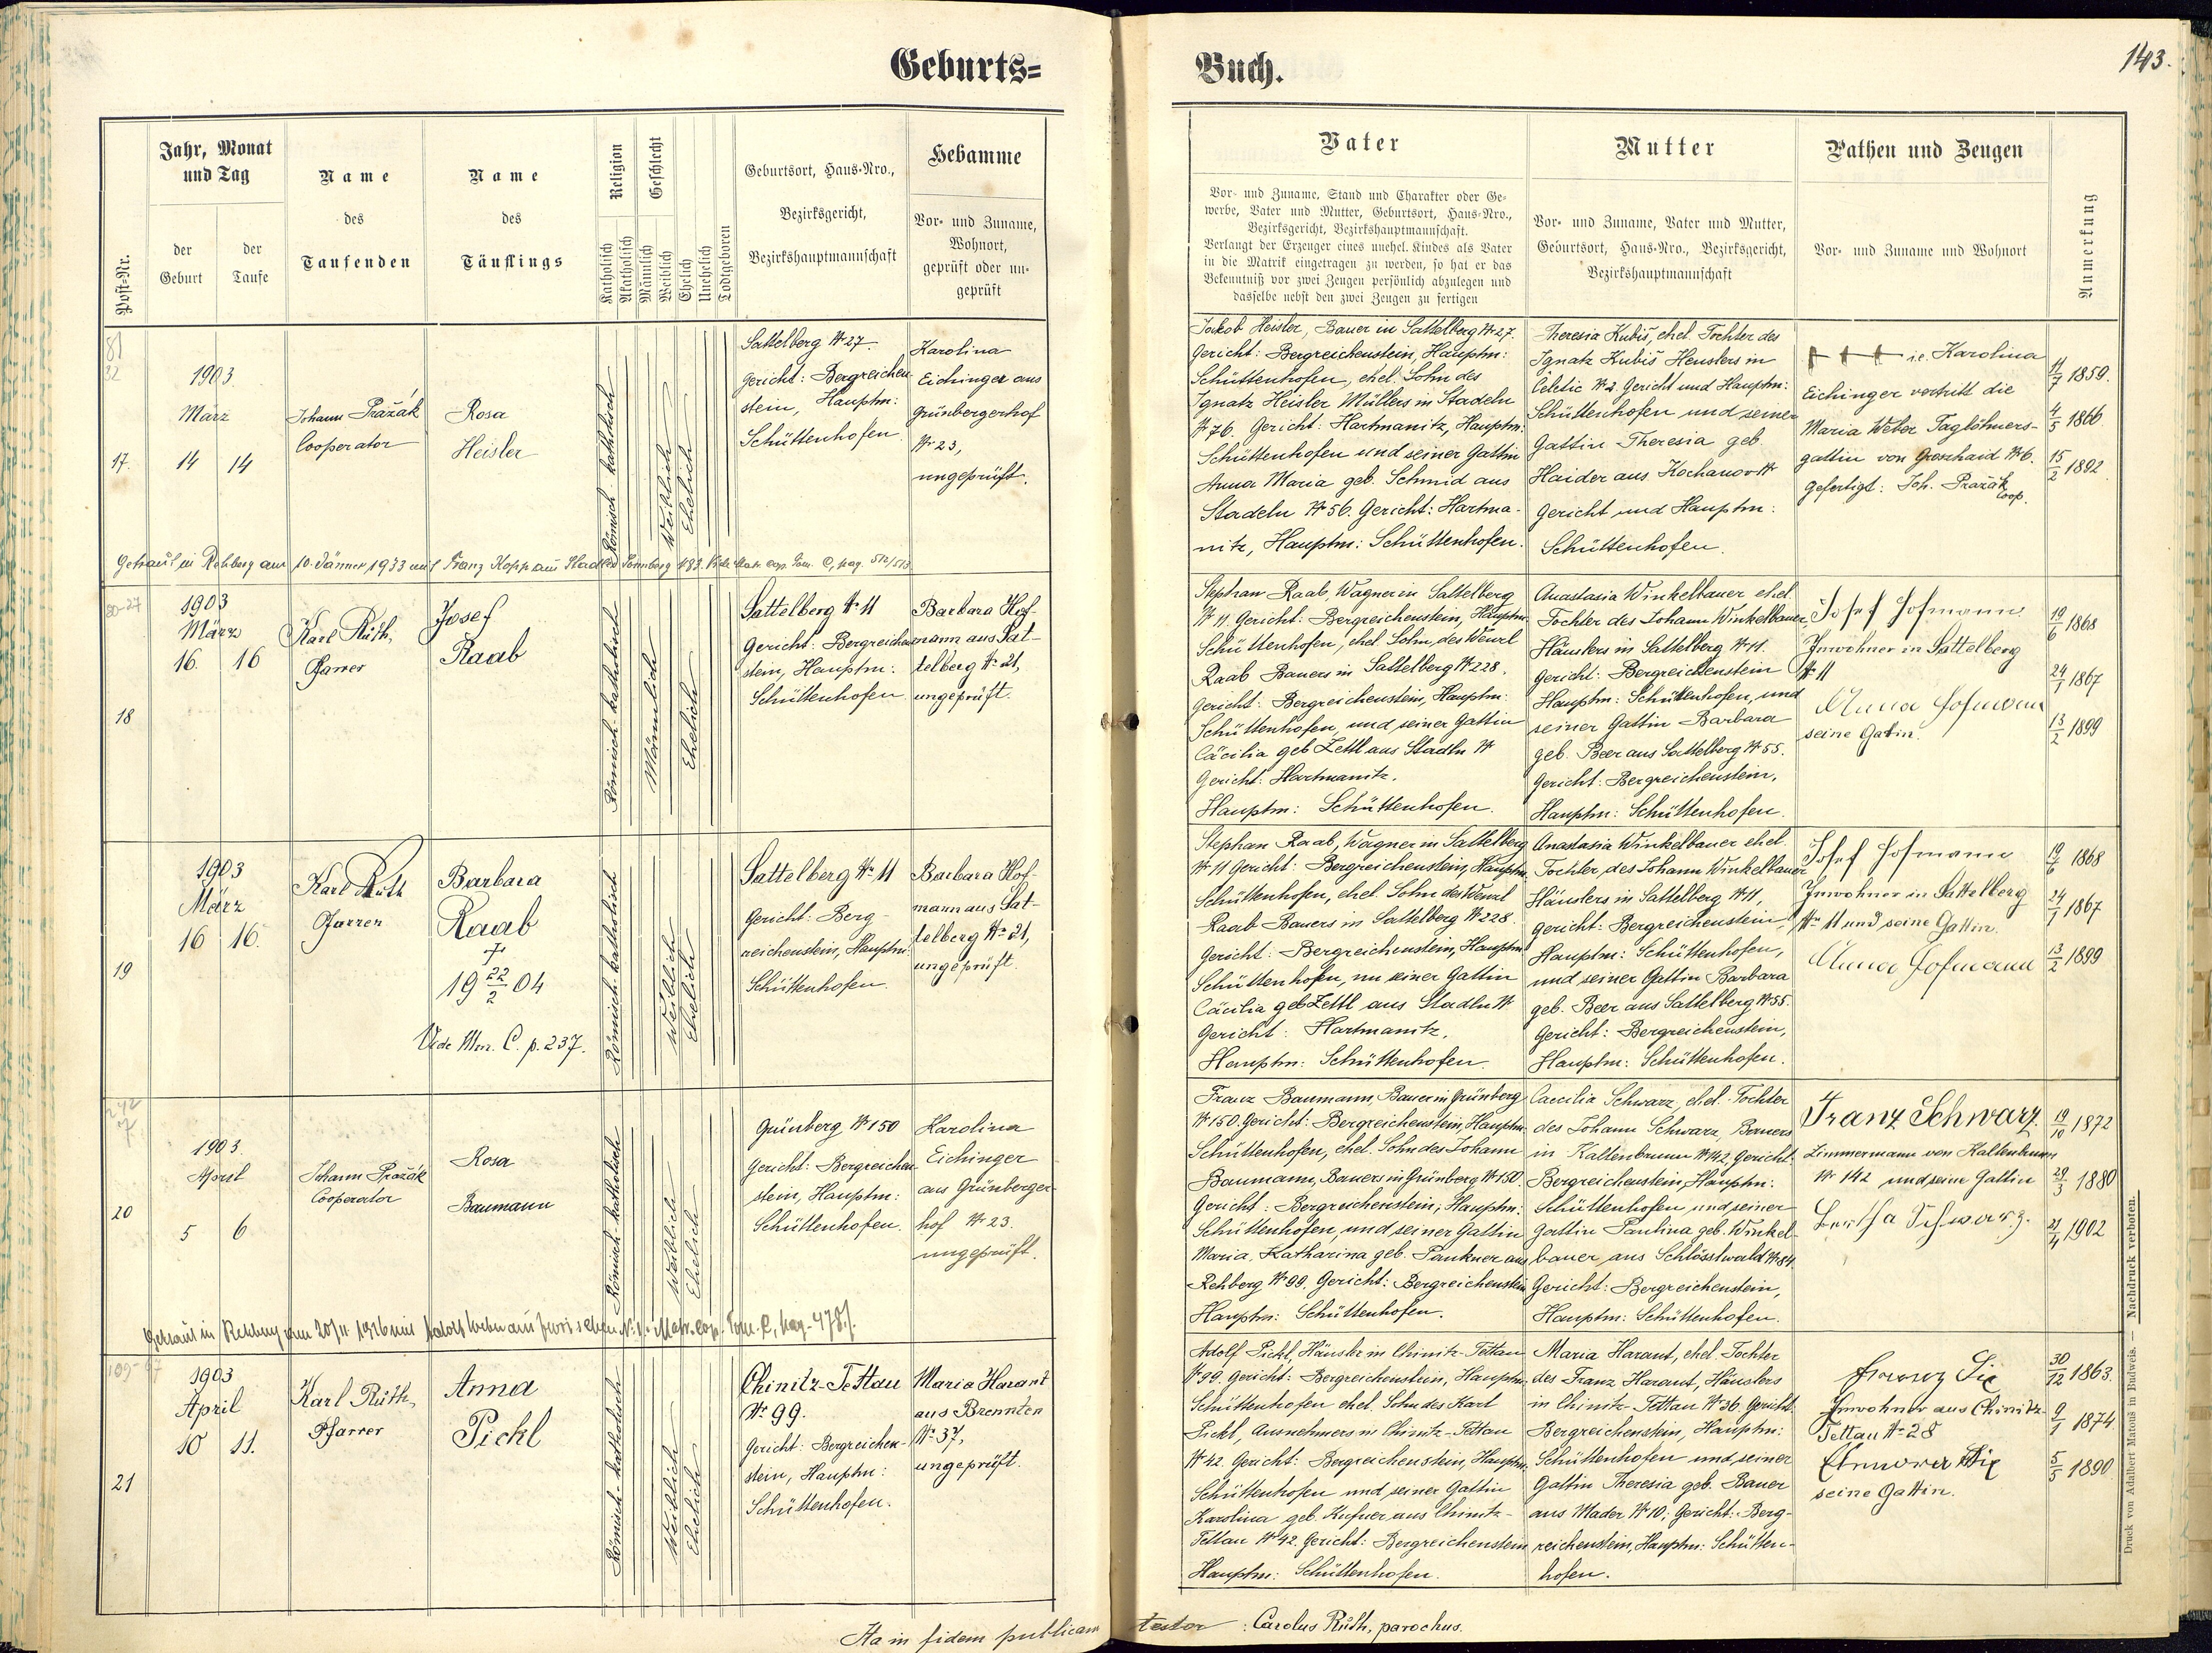 Geburts=
Buch.
143.
Post-Nr.
Jahr, Monat
und Tag
der
Geburt
der
Taufe
Name
des
Taufenden
Name
des
Täuflings
Religion
Katholisch
Akatholisch
Geschlecht
Männlich
Weiblich
Ehelich
Unehelich
Todtgeboren
Geburtsort, Haus-Nro.,
Bezirksgericht,
Bezirkshauptmannschaft
Hebamme
Vor- und Zuname,
Wohnort,
geprüft oder un-
geprüft
Vater
Vor- und Zuname, Stand und Charakter oder Ge-
werbe, Vater und Mutter, Geburtsort, Haus-Nro.,
Bezirksgericht, Bezirkshauptmannschaft.
Verlangt der Erzeuger eines unehel. Kindes als Vater
in die Matrik eingetragen zu werden, so hat er das
Bekenntniß vor zwei Zeugen persönlich abzulegen und
dasselbe nebst den zwei Zeugen zu fertigen
Mutter
Vor- und Zuname, Vater und Mutter,
Geburtsort, Haus-Nro., Bezirksgericht,
Bezirkshauptmannschaft
Pathen und Zeugen
Vor- und Zuname und Wohnort
Anmerkung
17.
1903
März
14 14
Johann Pražák
Cooperator
Rosa
Heisler
Römisch katholisch
Weiblich
Ehelich
Sattelberg № 27.
Gericht: Bergreichen-
stein, Hauptm:
Schüttenhofen.
Karolina
Eichinger aus
Grünbergerhof
№ 23,
ungeprüft.
Jakob Heisler, Bauer in Sattelberg № 27.
Gericht: Bergreichenstein, Hauptm:
Schüttenhofen, ehel. Sohn des
Ignatz Heisler Müllers in Stadeln
№ 76. Gericht: Hartmanitz, Hauptm:
Schüttenhofen und seiner Gattin
Anna Maria geb. Schmid aus
Stadeln № 56. Gericht: Hartma-
nitz, Hauptm: Schüttenhofen.
Theresia Kubiš, ehel. Tochter des
Ignatz Kubiš Heuslers in
Celetic № 2 Gericht und Hauptm:
Schüttenhofen und seiner
Gattin Theresia geb.
Haider aus Kochanov №
Gericht und Hauptm:
Schüttenhofen.
+ + + i.e. Karolina
Eichinger vertritt die
Maria Weber Taglöhners-
gattin von Groshaid № 6.
Gefertigt: Joh. Pražák
Coop.
11/7 1859.
4/5 1866
15/2 1892
Getraut in Rehberg am 10. Jänner 1933 mit Franz Kopp aus Stadln Sonnberg 183. Vide Matr. cop. Tom. C, pag. 512/513
18
1903
März
16. 16
Karl Rüth,
Pfarrer
Josef
Raab
Römisch-katholisch
Männlich
Ehelich
Sattelberg № 11
Gericht: Bergreichen-
stein, Hauptm:
Schüttenhofen.
Barbara Hof-
mann aus Sat-
telberg № 21,
ungeprüft.
Stephan Raab, Wagner in Sattelberg
№ 11. Gericht: Bergreichenstein, Hauptm:
Schüttenhofen, ehel. Sohn des Wenzl
Raab Bauers in Sattelberg № 228.
Gericht: Bergreichenstein, Hauptm:
Schüttenhofen, und seiner Gattin
Cäcilia geb Zettl aus Stadln №
Gericht: Hartmanitz.
Hauptm: Schüttenhofen.
Anastasia Winkelbauer ehel.
Tochter des Johann Winkelbauer
Häuslers in Sattelberg № 11.
Gericht: Bergreichenstein
Hauptm: Schüttenhofen, und
seiner Gattin Barbara
geb. Beer aus Sattelberg № 55.
Gericht: Bergreichenstein,
Hauptm: Schüttenhofen.
Josef Hofmann
Inwohner in Sattelberg
№ 11
Anna Hofmann
seine Gattin.
19/6 1868
24/1 1867
13/2 1899
19
1903
März
16 16.
Karl Rüth
Pfarrer
Barbara
Raab
†
19 22/2 04
Vide Mor. C. p. 237.
Römisch-katholisch
Weiblich
Ehelich
Sattelberg № 11
Gericht: Berg-
reichenstein, Hauptm:
Schüttenhofen.
Barbara Hof-
mann aus Sat-
telberg № 21,
ungeprüft.
Stephan Raab, Wagner in Sattelberg
№ 11 Gericht: Bergreichenstein, Hauptm:
Schüttenhofen, ehel. Sohn des Wenzl
Raab Bauers in Sattelberg № 228.
Gericht: Bergreichenstein, Hauptm
Schüttenhofen, nu seiner Gattin
Cäcilia geb Zettl aus Stadln №
Gericht: Hartmanitz,
Hauptm: Schüttenhofen.
Anastasia Winkelbauer ehel.
Tochter des Johann Winkelbauer
Häuslers in Sattelberg № 11,
Gericht: Bergreichenstein,
Hauptm: Schüttenhofen,
und seiner Gattin Barbara
geb. Beer aus Sattelberg № 55.
Gericht: Bergreichenstein,
Hauptm: Schüttenhofen.
Josef Hofmann
Inwohner in Sattelberg
№ 11 und seine Gattin.
Anna Hofmann
19/6 1868
24/1 1867
13/2 1899
20
1903.
April
5 6
Johann Pražák
Cooperator
Rosa
Baumann
Römisch-katholisch
Weiblich
Ehelich
Grünberg № 150
Gericht: Bergreichen-
stein, Hauptm:
Schüttenhofen.
Karolina
Eichinger
aus Grünberger-
hof № 23.
ungeprüft.
Franz Baumann, Bauer in Grünberg
№ 150. Gericht: Bergreichenstein, Hauptm:
Schüttenhofen, ehel. Sohn des Johann
Baumann, Bauers in Grünberg № 150.
Gericht: Bergreichenstein, Hauptm:
Schüttenhofen, und seiner Gattin
Maria Katharina geb. Paukner aus
Rehberg № 99. Gericht: Bergreichenstein
Hauptm: Schüttenhofen.
Caecilia Schwarz, ehel. Tochter
des Johann Schwarz, Bauers
in Kaltenbrunn № 142. Gericht:
Bergreichenstein, Hauptm:
Schüttenhofen und seiner
Gattin Paulina geb. Winkel-
bauer aus Schlösslwald № 84.
Gericht: Bergreichenstein,
Hauptm: Schüttenhofen.
Franz Schwarz.
Zimmermann von Kaltenbrunn
№ 142 und seine Gattin
Bertha Schwarz.
19/10 1872
29/3 1880
21/4 1902
Getraut in Rehberg am 20/II 1926 mit Adolf Weber aus № 1. Matr. cop. Tom. C, pag. 478/.
21
1903
April
10 11.
Karl Rüth,
Pfarrer
Anna
Pickl
Römisch-katholisch
Weiblich
Ehelich
Chinitz-Tettau
№ 99.
Gericht: Bergreichen-
stein, Hauptm:
Schüttenhofen.
Maria Harant
aus Brennten
№ 37,
ungeprüft.
Adolf Pickl, Häusler in Chinitz-Tettau
№ 99. Gericht: Bergreichenstein, Hauptm:
Schüttenhofen ehel. Sohn des Karl
Pickl, Ausnehmers in Chinitz-Tettau
№ 42. Gericht: Bergreichenstein, Hauptm:
Schüttenhofen und seiner Gattin
Karolina geb. Kufner aus Chinitz-
Tettau № 42. Gericht: Bergreichenstein
Hauptm: Schüttenhofen.
Maria Harant, ehel. Tochter
des Franz Harant, Häuslers
in Chinitz-Tettau № 36. Gericht:
Bergreichenstein, Hauptm:
Schüttenhofen und seiner
Gattin Theresia geb. Bauer
aus Mader № 10; Gericht: Berg-
reichenstein, Hauptm: Schütten-
hofen.
Franz Six
Inwohner aus Chinitz-
Tettau № 28
Six
seine Gattin.
30/12 1863.
9/1 1874.
5/5 1890
Ita in fidem publicam testor : Carolus Rüth, parochus.
Druck von Adalbert Matouš in Budweis. — Nachdruck verboten.